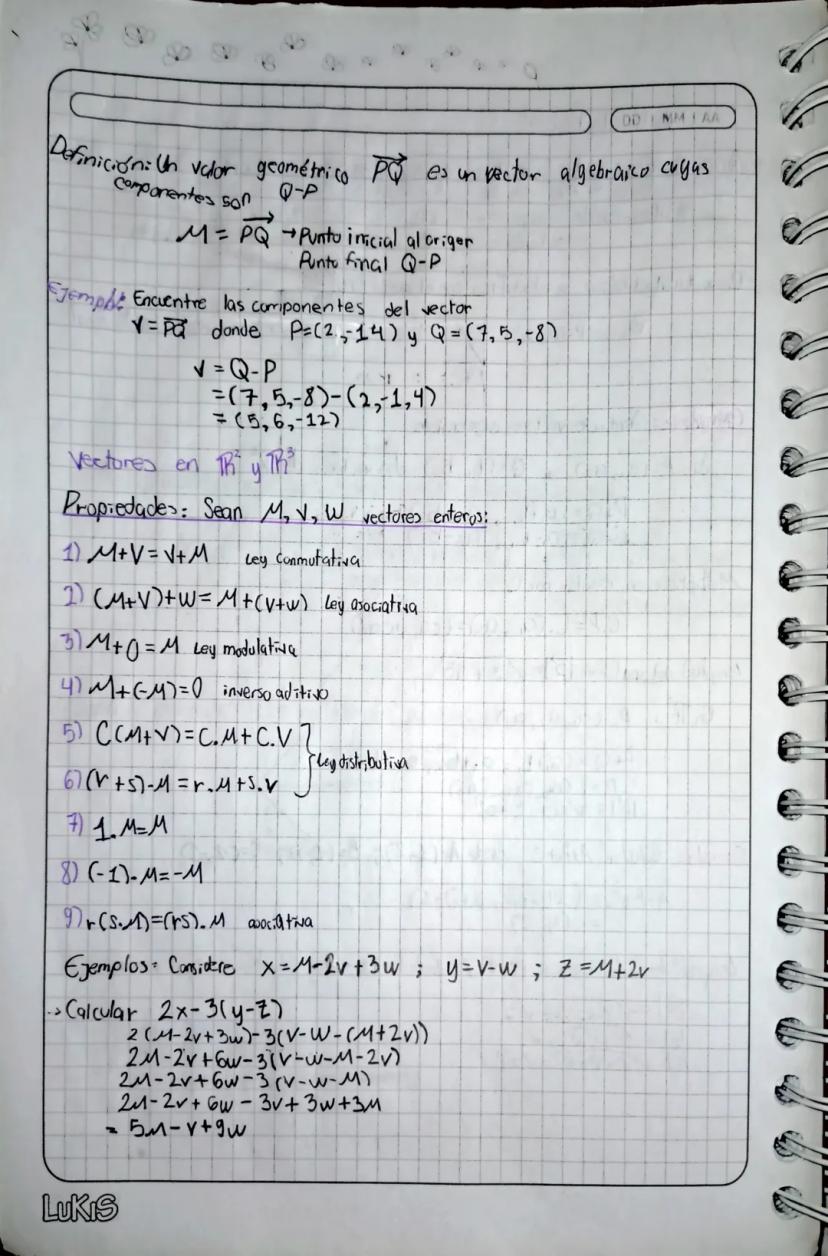 DD MM AA
Definición: Un valor geométrico PQ es un vector algebraico cuyas
componentes son Q-P
M = PQ → Punto inicial al origen
Punto final Q-P
Ejemplo: Encuentre las componentes del vector
V = PQ donde P=(2,-14) y Q=(7,5,-8)
V = Q-P
=(7,5,-8)-(2,-1,4)
= (5,6,-12)
Vectores en ℝ² y ℝ³
Propiedades: Sean M, V, W vectores enteros:
1) M+V=V+M Ley Conmutativa
2) (M+V)+W=M+(V+W) Ley asociativa
3) M+0=M Ley modulativa
4) M+(-M)=0 inverso aditivo
5) C(M+V)=C.M+C.V
Ley distributiva
6) (r+s)-M=r.M+s.v
7) 1.M=M
8) (-1)-M=-M
9) r(s.M)=(rs).M asociativa
Ejemplos: Considere x=M-2v+3w ; y=v-w ; z=M+2v
→ Calcular 2x-3(y-z)
2(M-2v+3w)-3(v-w-(M+2v))
2M-2v+6w-3(v-w-M-2v)
2M-2v+6w-3(v-w-M)
2M-2v+6w-3v+3w+3M
= 5M-v+9w
LuKiS